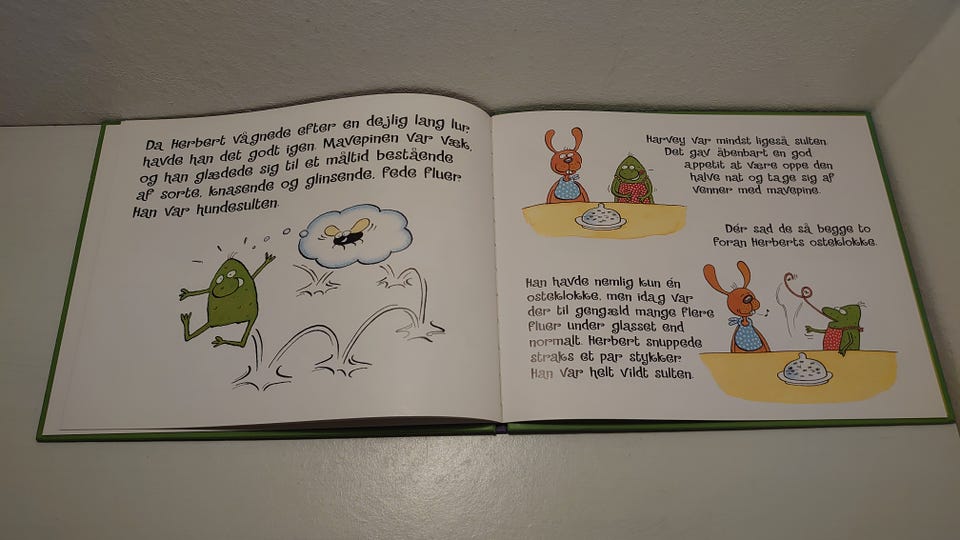 Da Herbert vågnede efter en dejlig lang lur,
havde han det godt igen. Mavepinen var væk,
og han glædede sig til et måltid bestående
af sorte, knasende og glinsende, fede fluer.
Han var hundesulten.
Harvey var mindst ligeså sulten.
Det gav åbenbart en god
appetit at være oppe den
halve nat og tage sig af
venner med mavepine.
Dér sad de så begge to
foran Herberts osteklokke.
Han havde nemlig kun én
osteklokke, men idag var
der til gengæld mange flere
fluer under glasset end
normalt. Herbert snuppede
straks et par stykker.
Han var helt vildt sulten.